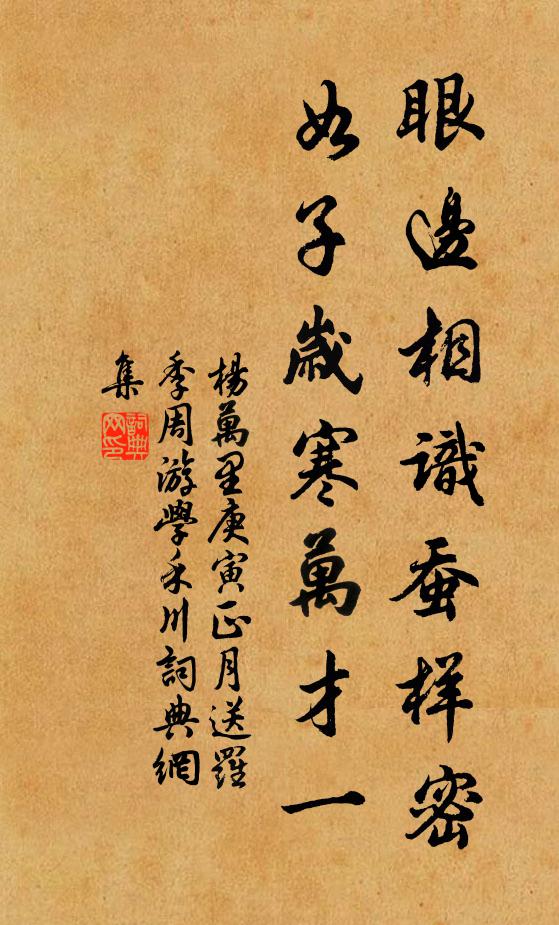 眼邊相識蚕样密
如子歲寒萬才一
楊萬里庚寅正月送羅
季周游學禾川詞典網
集
詞典
网印